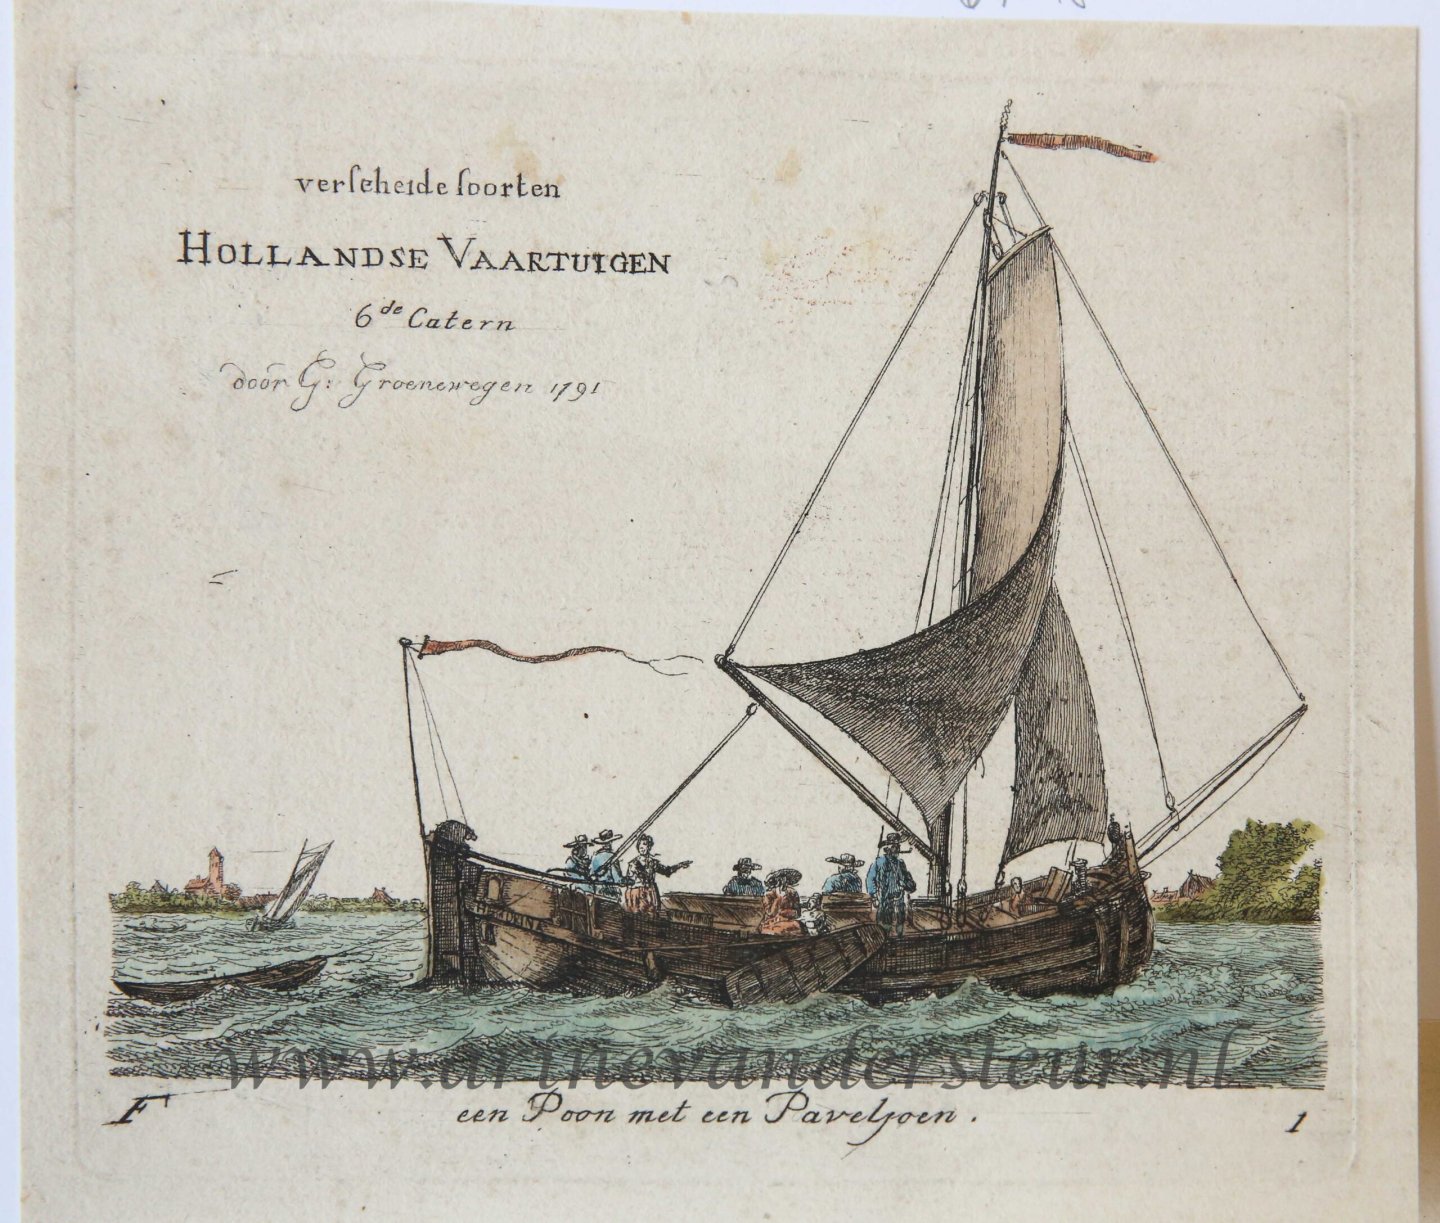 verſcheide ſoorten
HOLLANDSE VAARTUIGEN
6de Catern
door G: Groenewegen 1791
www.arinevandersteur.nl
F een Poon met een Paveljoen. 1